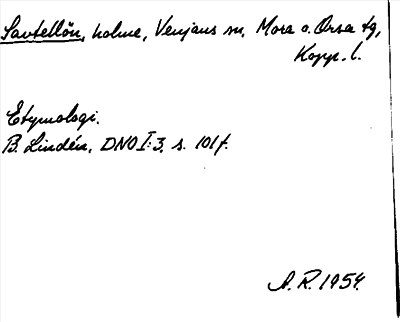 Savtellön, holme, Venjans sn, Mora o. Orsa tg,
Kopp. l.
Etymologi.
B. Lindén, DNO I:3, s. 101 f.
A. R. 1954.